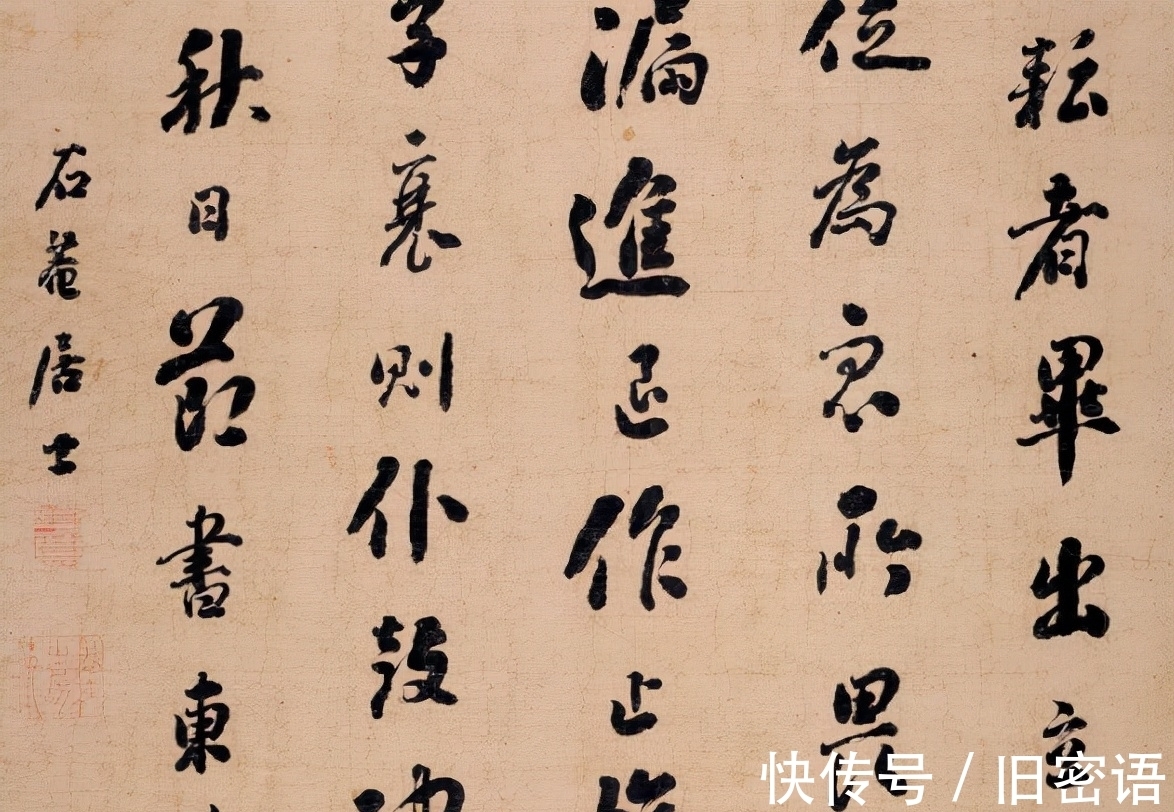 耘者畢出立
為眾所畏
漏進退作止
草衰則仆鼓決
秋日節書東
石菴居士
快传号 / 旧密语